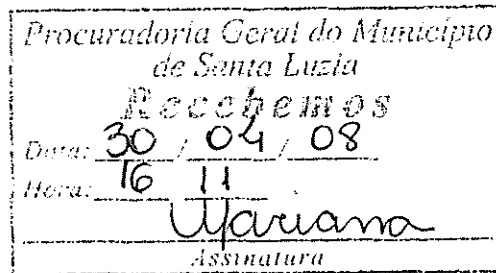 Procuradoria Geral do Município
de Santa Luzia
Recebemos
Data: 30 / 04 / 08
Hora: 16 11
Mariana
Assinatura